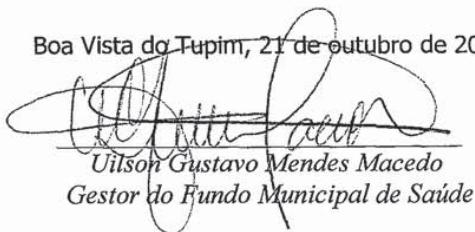 Boa Vista do Tupim, 21 de outubro de 20
Uilson Gustavo Mendes Macedo
Gestor do Fundo Municipal de Saúde